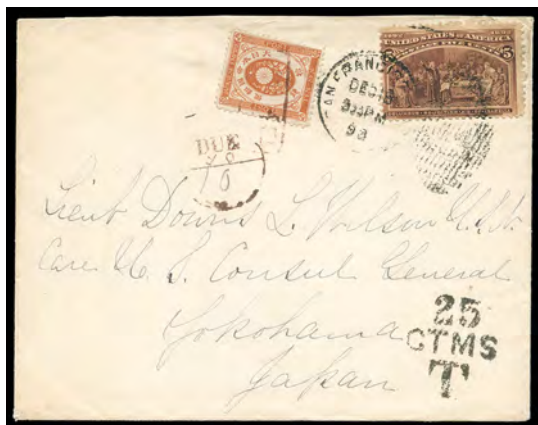 UNITED STATES OF AMERICA
5
SAN FRANCISCO
DEC
PM
93
DUE
Lieut Downs L. Wilson U.S.N.
Care U. S. Consul General
Yokohama
Japan
25
CTMS
T